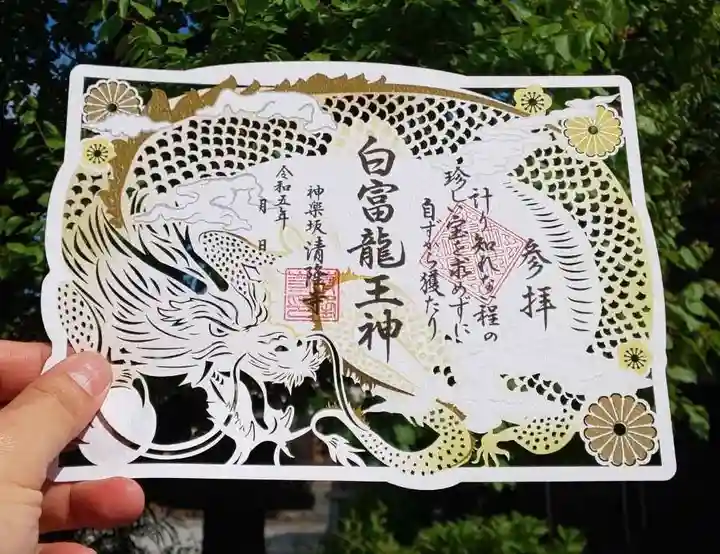 参拝
計り知れない程の
珍しい宝を求めずに
自ずから獲たり
白富龍王神
神楽坂 清隆寺
令和五年
月 日